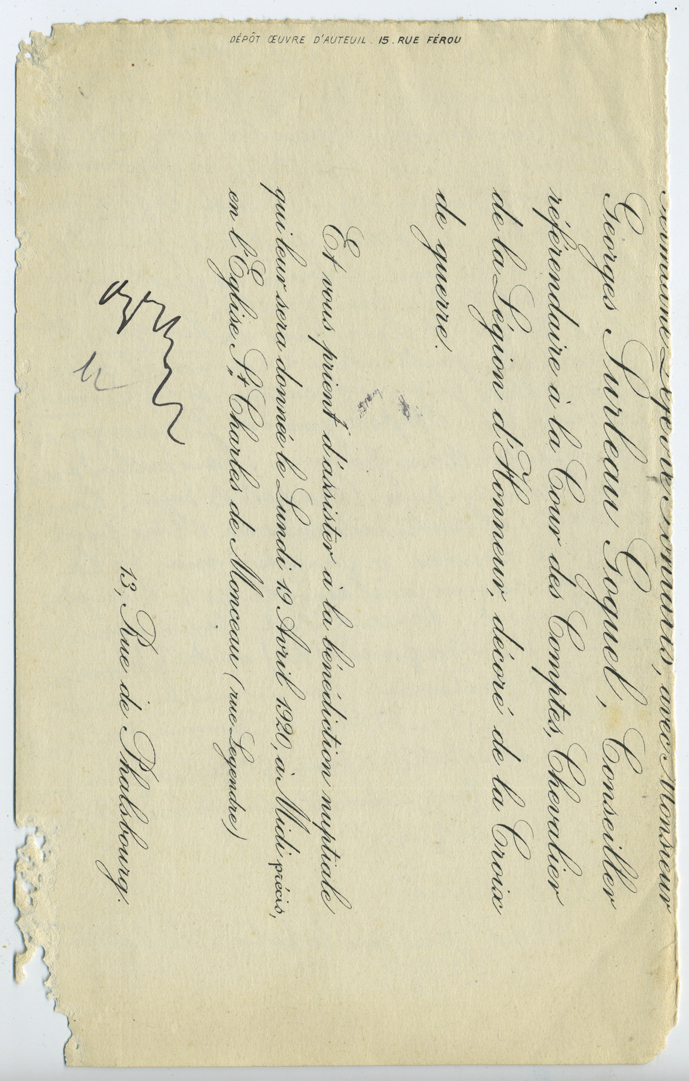 avec Monsieur
Georges Surleau Goguel, Conseiller
référendaire à la Cour des Comptes, Chevalier
de la Légion d'Honneur, décoré de la Croix
de guerre.
Et vous prient d'assister à la bénédiction nuptiale
qui leur sera donnée le Lundi 19 Avril 1920, à Midi précis,
en l'Église St Charles de Monceau (rue Legendre)
13, Rue de Phalsbourg.
DÉPÔT ŒUVRE D'AUTEUIL. 15. RUE FÉROU